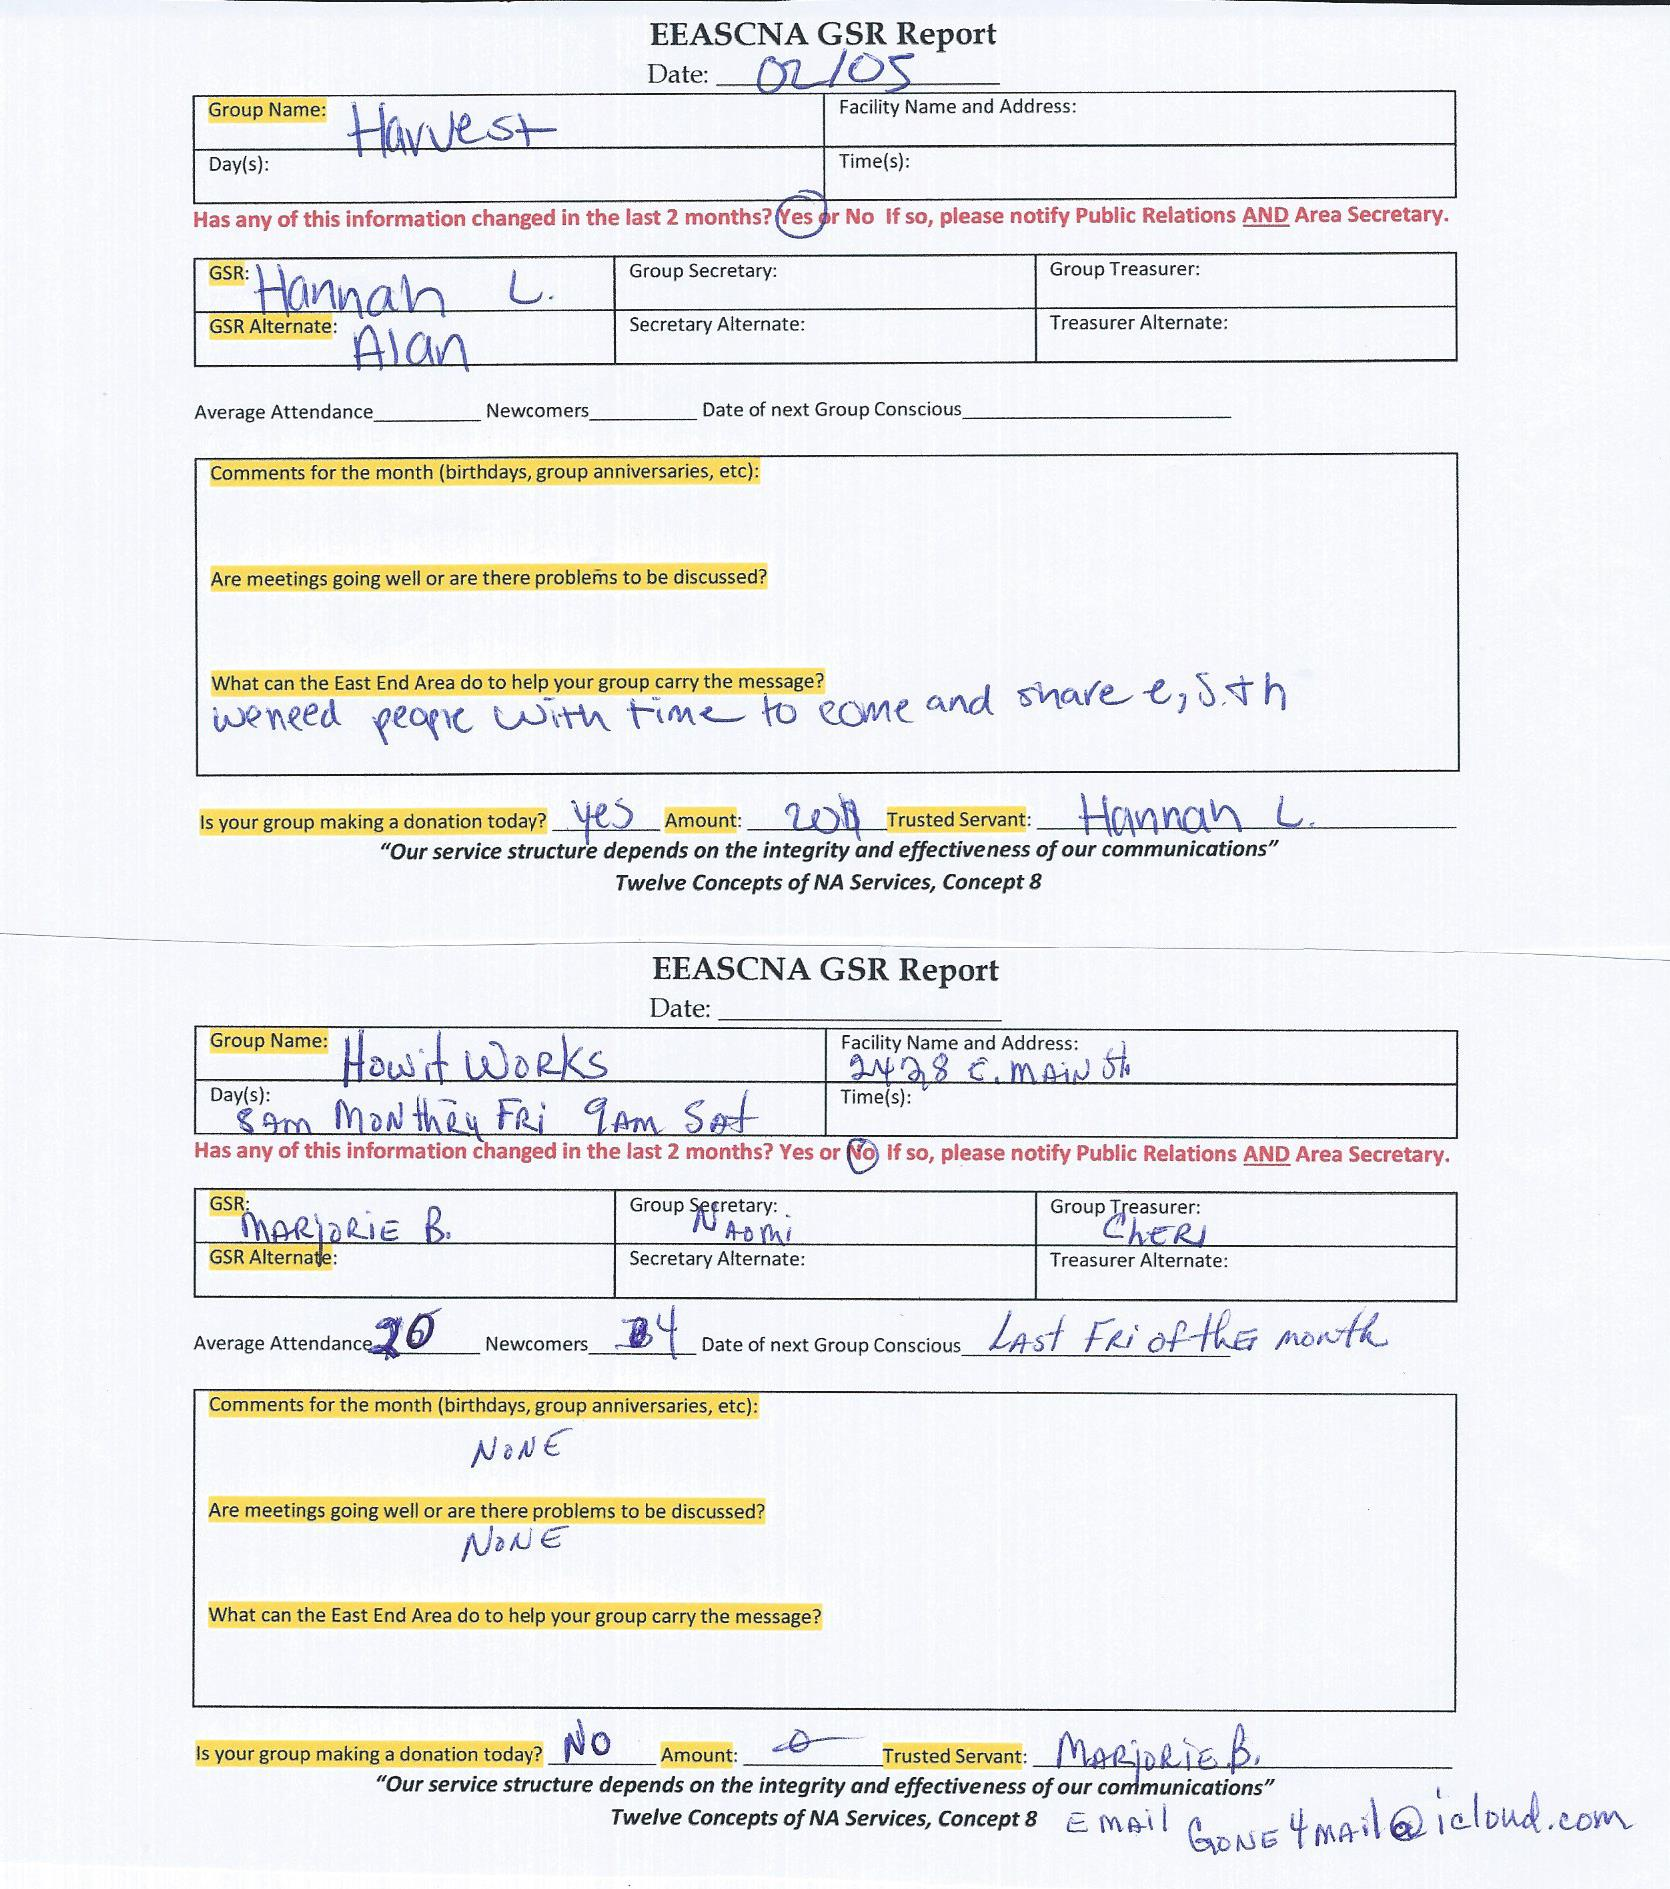 EEASCNA GSR Report
Date: 02/05
Group Name: Harvest
Facility Name and Address:
Day(s):
Time(s):
Has any of this information changed in the last 2 months? Yes or No If so, please notify Public Relations AND Area Secretary.
GSR: Hannah L.
Group Secretary:
Group Treasurer:
GSR Alternate: Alan
Secretary Alternate:
Treasurer Alternate:
Average Attendance Newcomers Date of next Group Conscious
Comments for the month (birthdays, group anniversaries, etc):
Are meetings going well or are there problems to be discussed?
What can the East End Area do to help your group carry the message?
we need people with time to come and share e, s + h
Is your group making a donation today? yes Amount: Trusted Servant: Hannah L.
"Our service structure depends on the integrity and effectiveness of our communications"
Twelve Concepts of NA Services, Concept 8
EEASCNA GSR Report
Date:
Group Name: How it WORKS
Facility Name and Address:
2428 E. MAIN St.
Day(s):
8am MON thru FRi 9AM SAt
Time(s):
Has any of this information changed in the last 2 months? Yes or No If so, please notify Public Relations AND Area Secretary.
GSR: MARJORIE B.
Group Secretary: NAOMi
Group Treasurer: ChERI
GSR Alternate:
Secretary Alternate:
Treasurer Alternate:
Average Attendance 20 Newcomers 4 Date of next Group Conscious LASt FRi of thE month
Comments for the month (birthdays, group anniversaries, etc):
NONE
Are meetings going well or are there problems to be discussed?
NONE
What can the East End Area do to help your group carry the message?
Is your group making a donation today? NO Amount: 0 Trusted Servant: MARJORIE B.
"Our service structure depends on the integrity and effectiveness of our communications"
Twelve Concepts of NA Services, Concept 8
EMAIL GONE4MAil@icloud.com